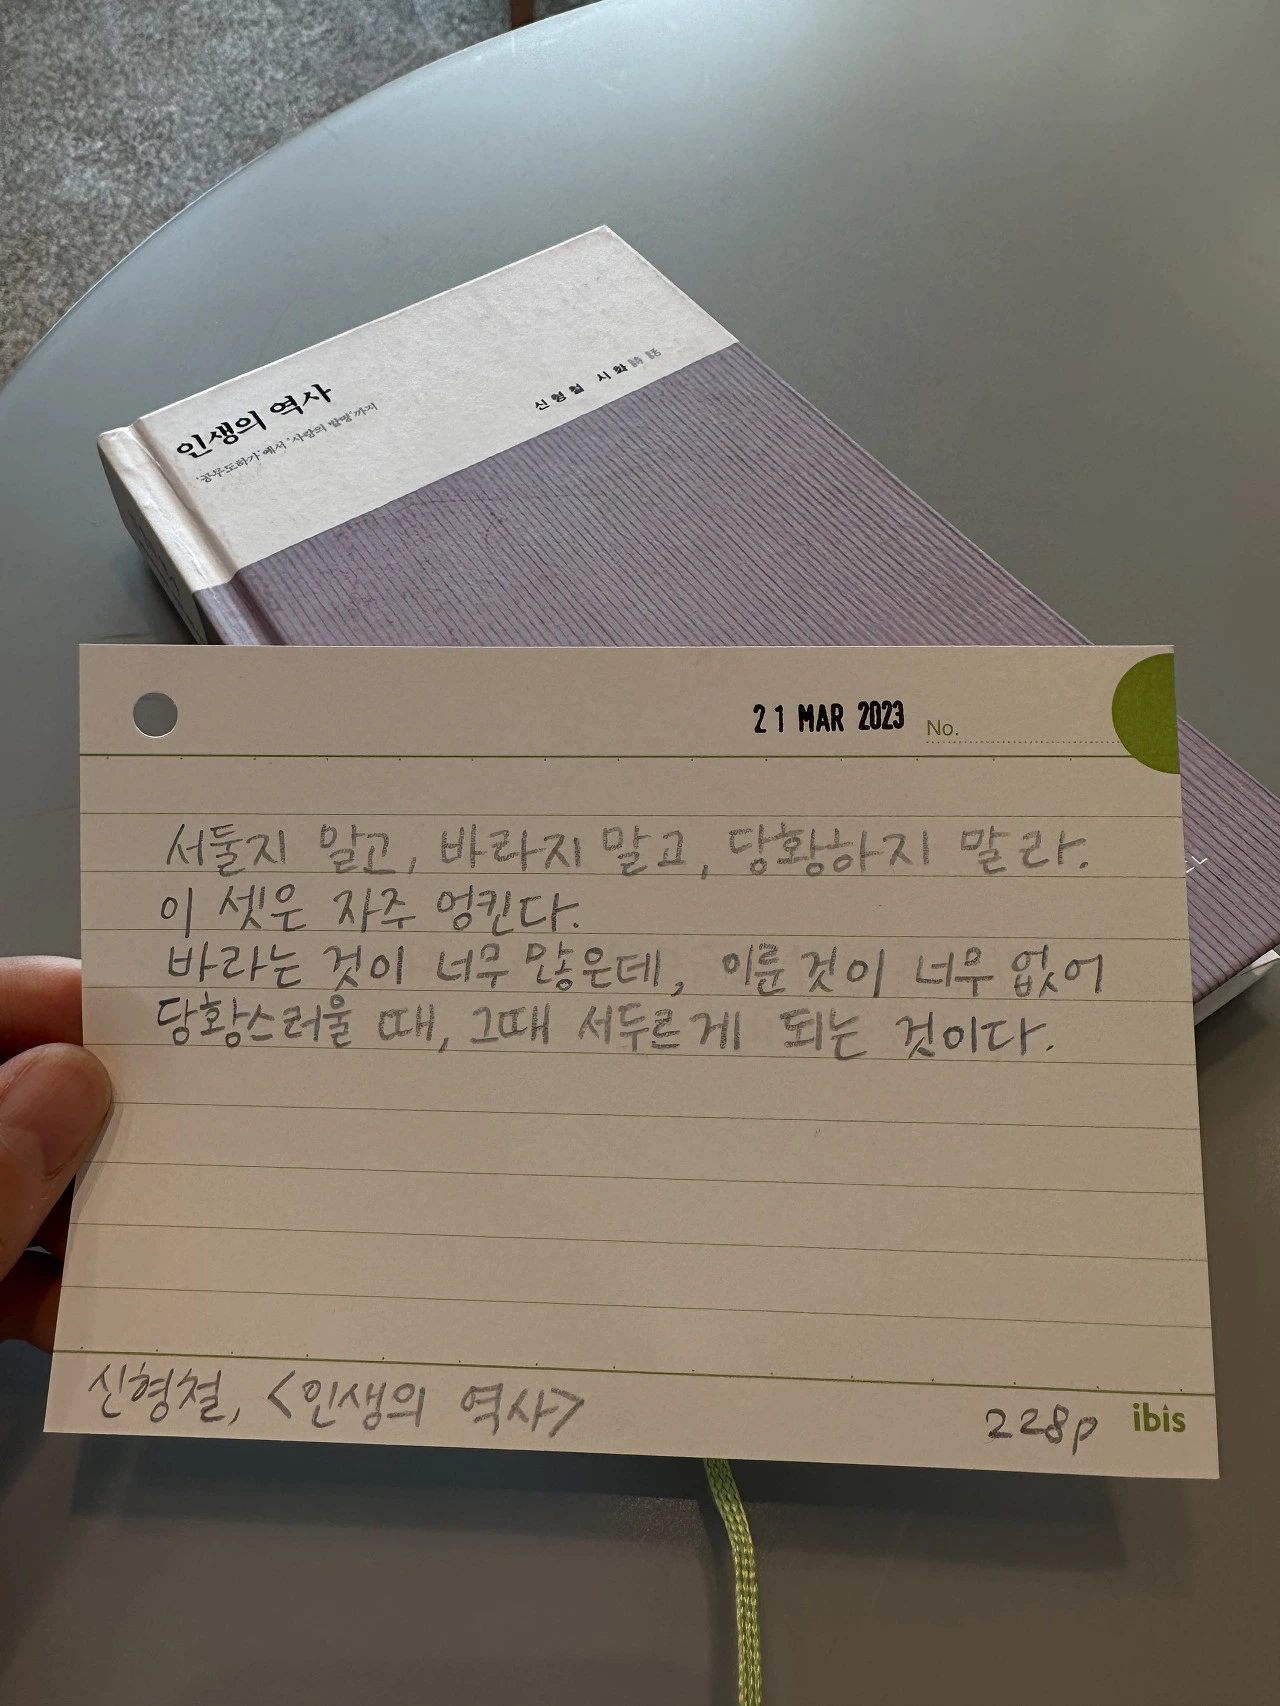 인생의 역사
'공무도하가'에서 '사랑의 발명'까지
신형철 시화詩話
21 MAR 2023 No.
서둘지 말고, 바라지 말고, 당황하지 말라.
이 셋은 자주 엉킨다.
바라는 것이 너무 많은데, 이룬 것이 너무 없어
당황스러울 때, 그때 서두르게 되는 것이다.
신형철, <인생의 역사>
228p ibis